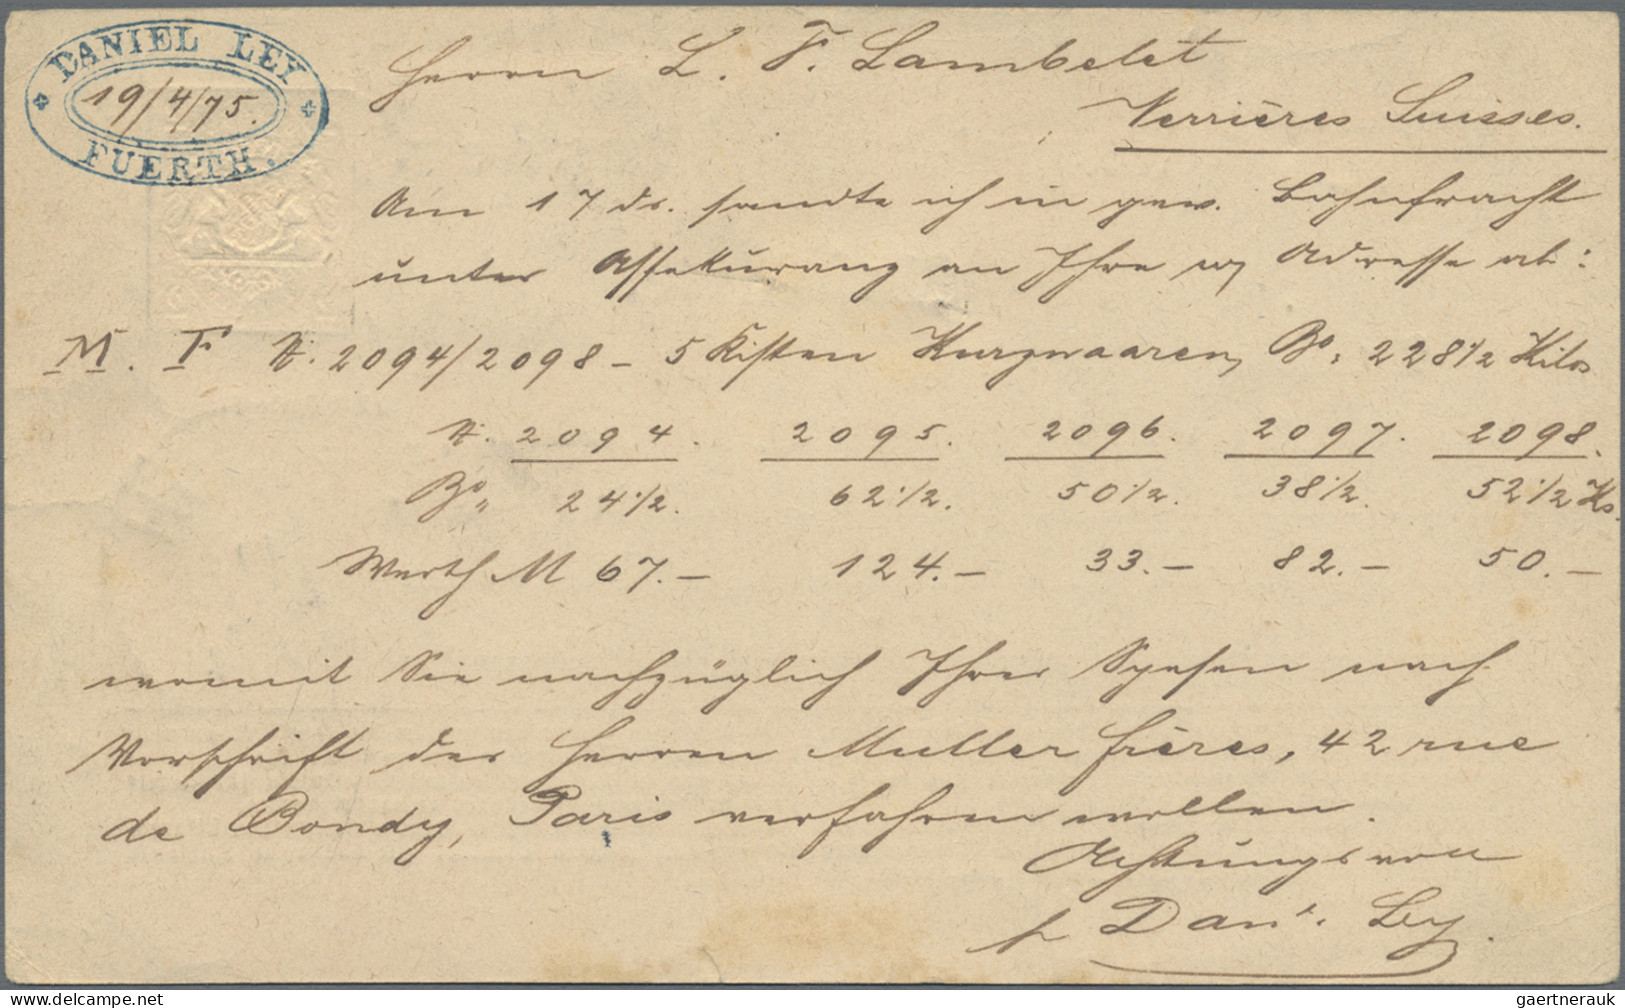 DANIEL LEY
19/4/75.
FUERTH.
Herrn L. F. Lambelet
Verrières Suisses.
Am 17 ds. sandte ich in gew. Bahnfracht
unter Assekuranz an Ihre w Adresse ab:
M. F № 2094/2098 – 5 Kisten Kurzwaaren, Bo: 228 1/2 Kilos
№. 2094. 2095. 2096. 2097. 2098.
Bo„ 24 1/2. 62 1/2. 50 1/2. 38 1/2. 52 1/2 Ks.
Werth M 67.– 124.– 33.– 82.– 50.–
womit Sie nachzüglich Ihrer Spesen nach
Vorschrift der Herren Muller frères, 42 rue
de Bondy, Paris verfahren wollen.
Achtungsvoll
p Danl. Ley.
gaertnerauk
© www.delcampe.net